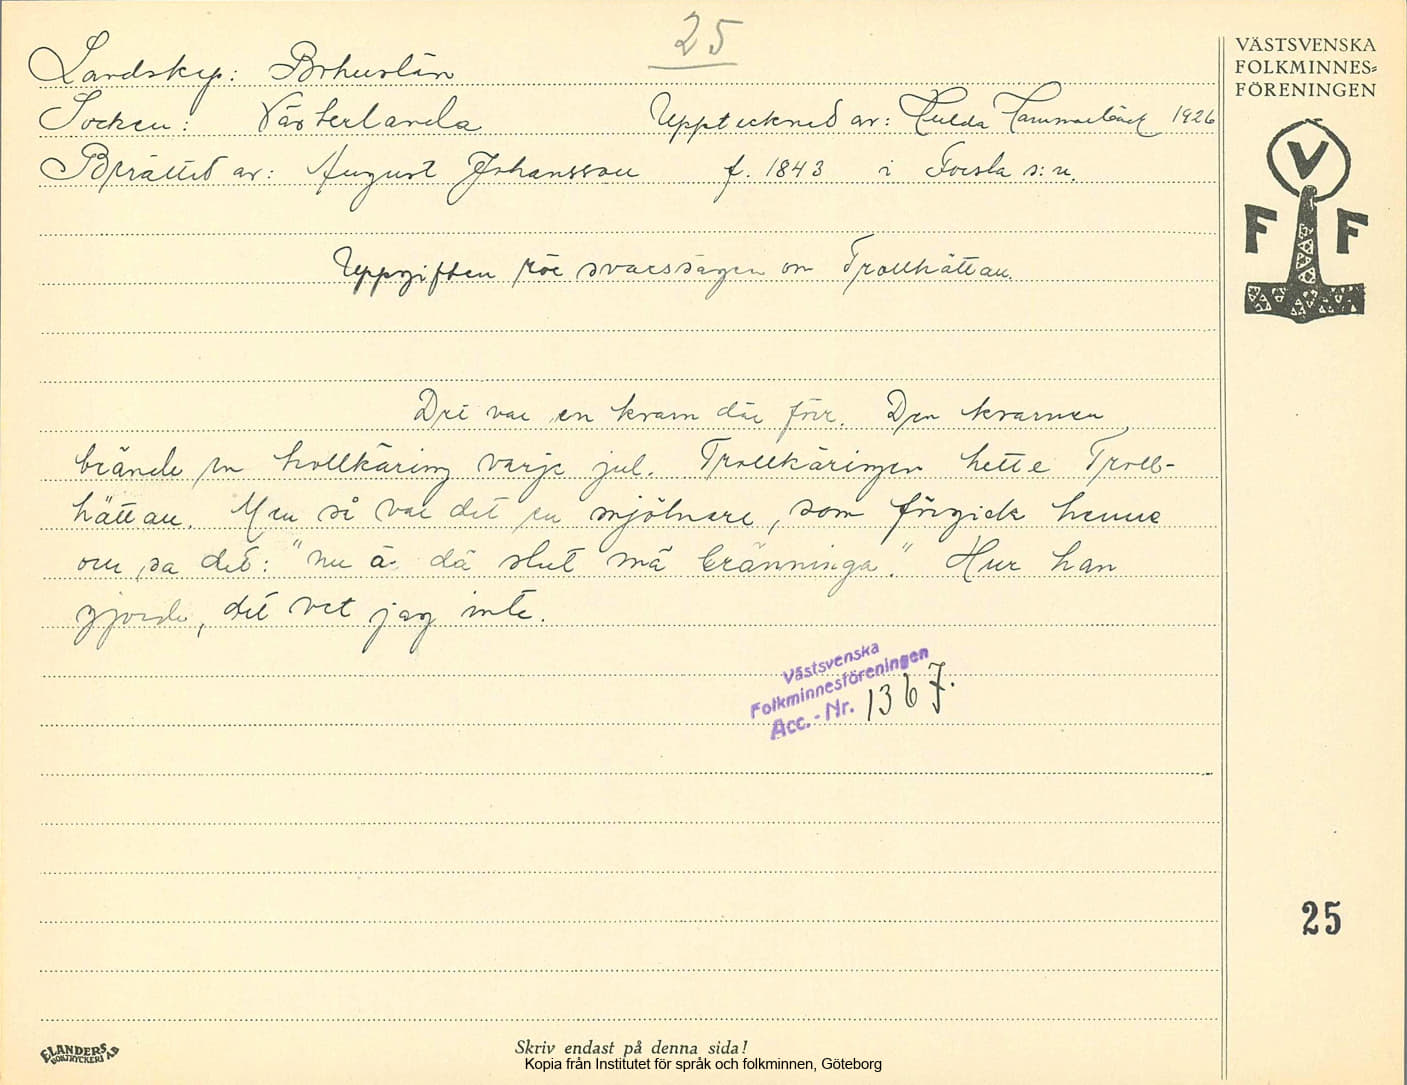 25
VÄSTSVENSKA
FOLKMINNES=
FÖRENINGEN
Landskap: Bohuslän
Socken: Västerlanda Upptecknad av: Hulda Hammarbäck 1926
Berättad av: August Johansson f. 1843 i Forsla s:n.
V
F F
Uppgiften rör svarssägen om Trollhättan.
Det var en kvarn där förr. Den kvarnen
brände en trollkäring varje jul. Trollkäringen hette Troll-
hättan. Men så var det en mjölnare, som förgick henne
om, sa det: "nu ä dä slut mä bränninga." Hur han
gjorde, det vet jag inte.
Västsvenska
Folkminnesföreningen
Acc.-Nr. 1367.
25
ELANDERS
BOKTRYCKERI AB
Skriv endast på denna sida!
Kopia från Institutet för språk och folkminnen, Göteborg